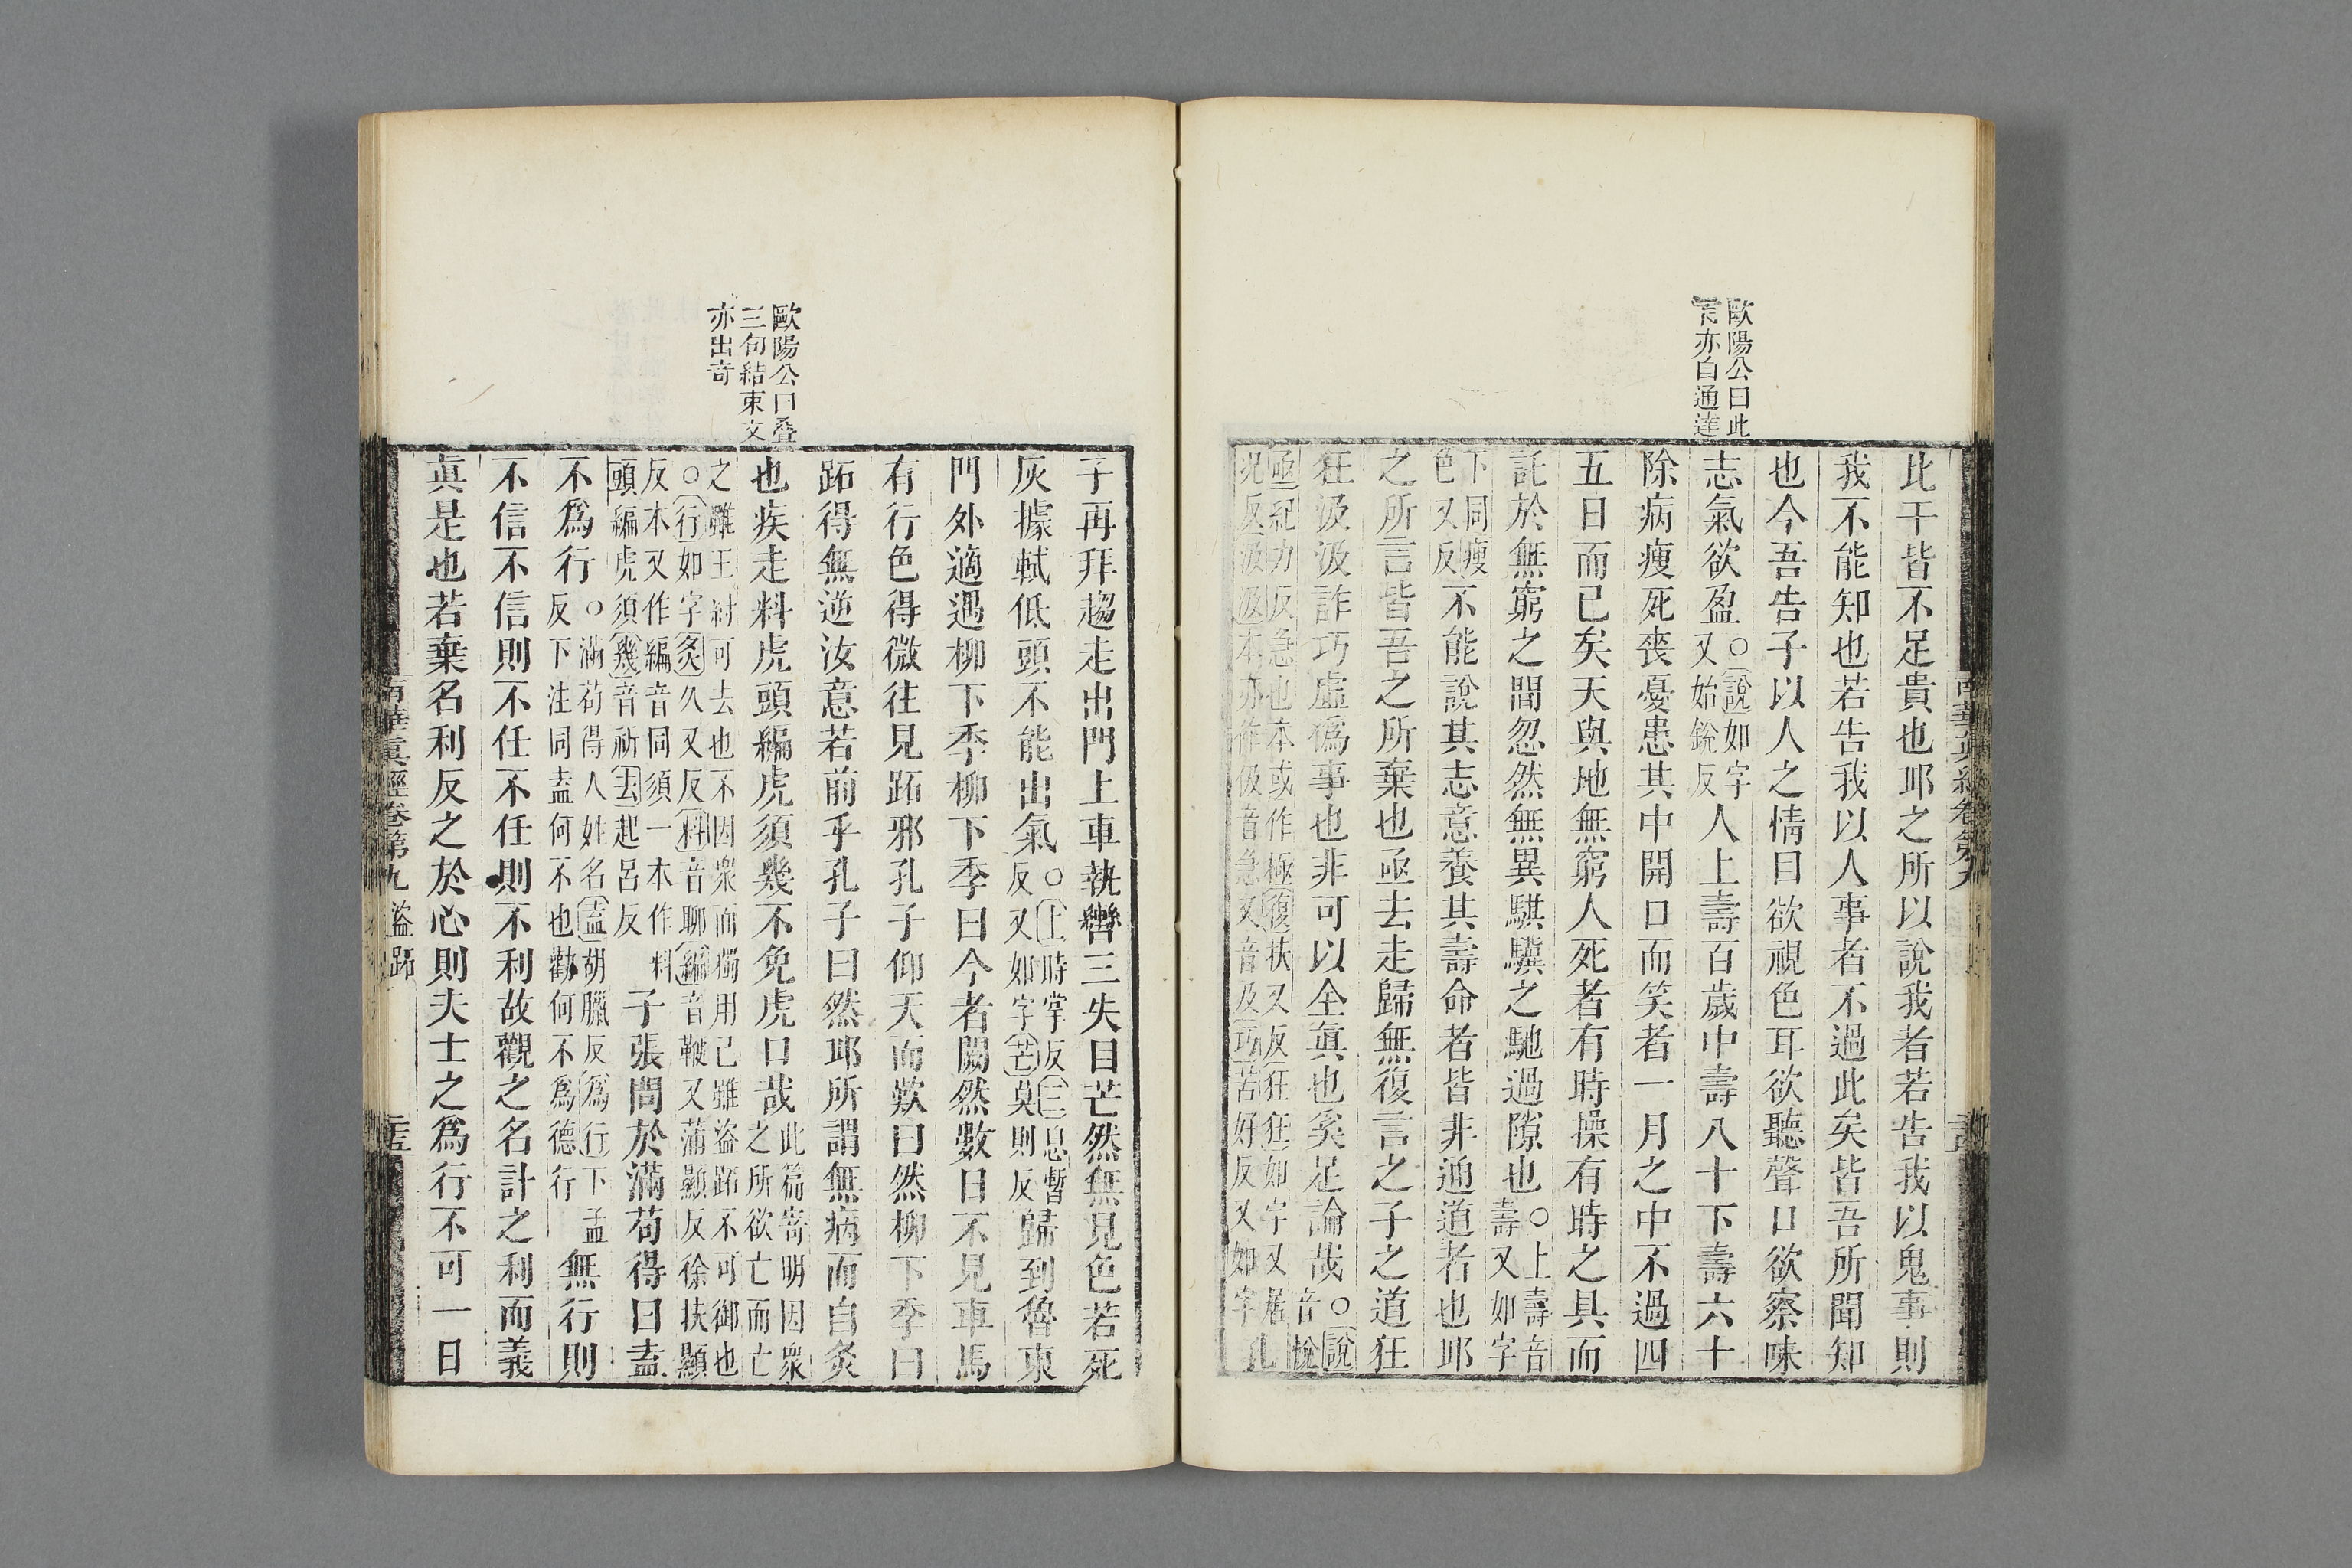 歐陽公曰此
亦自通達
比干皆不足貴也丘之所以說我者若告我以鬼事則
我不能知也若告我以人事者不過此矣皆吾所聞知
也今吾告子以人之情目欲視色耳欲聽聲口欲察味
志氣欲盈
○說如字
又始銳反
人上壽百歲中壽八十下壽六十
除病瘦死喪憂患其中開口而笑者一月之中不過四
五日而已矣天與地無窮人死者有時操有時之具而
託於無窮之間忽然無異騏驥之馳過隙也
○上壽音
壽又如字
下同瘦
色又反
不能說其志意養其壽命者皆非通道者也丘
之所言皆吾之所棄也亟去走歸無復言之子之道狂
狂汲汲詐巧虛僞事也非可以全眞也奚足論哉
○說
音悅
亟紀力反急也本或作極復扶又反狂狂如字又居
况反汲汲本亦作伋音急又音及巧苦好反又如字
孔
南華眞經卷第九
歐陽公曰叠
三句結束文
亦出奇
子再拜趨走出門上車執轡三失目芒然無見色若死
灰據軾低頭不能出氣
○上時掌反三息暫
反又如字芒莫則反
歸到魯東
門外適遇柳下季柳下季曰今者闕然數日不見車馬
有行色得微往見跖邪孔子仰天而歎曰然柳下季曰
跖得無逆汝意若前乎孔子曰然丘所謂無病而自灸
也疾走料虎頭編虎須幾不免虎口哉
此篇寄明因衆
之所欲亡而亡
之雖王紂可去也不因衆而獨用己雖盜跖不可御也
○行如字灸久又反料音聊編音鞭又蒲顯反徐扶顯
反本又作編音同須一本作料
頭編虎須幾音祈去起呂反
子張問於滿苟得曰盍
不爲行
○滿苟得人姓名盍胡臘反爲行下孟
反下注同盍何不也勸何不爲德行
無行則
不信不信則不任不任則不利故觀之名計之利而義
眞是也若棄名利反之於心則夫士之爲行不可一日
南華眞經卷第九
盜跖